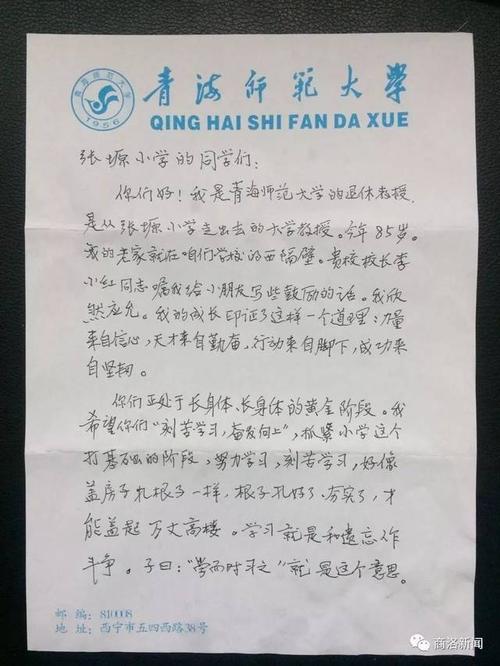 青海师范大学
1956
青海师范大学
QING HAI SHI FAN DA XUE
张塬小学的同学们:
你们好!我是青海师范大学的退休教授,
是从张塬小学走出去的大学教授。今年85岁。
我的老家就在咱们学校的西隔壁。贵校校长李
小红同志嘱我给小朋友写些鼓励的话。我欣
然应允。我的成长印证了这样一个道理:力量
来自信心,天才来自勤奋,行动来自脚下,成功来
自坚韧。
你们正处于长身体、长身体的黄金阶段。我
希望你们“刻苦学习,奋发向上”,抓紧小学这个
打基础的阶段,努力学习,刻苦学习,好像
盖房子扎根子一样,根子扎好了,夯实了,才
能盖起万丈高楼。学习就是和遗忘作
斗争。子曰:“学而时习之”就是这个意思。
邮 编:810008
地 址:西宁市五四西路38号
商洛新闻